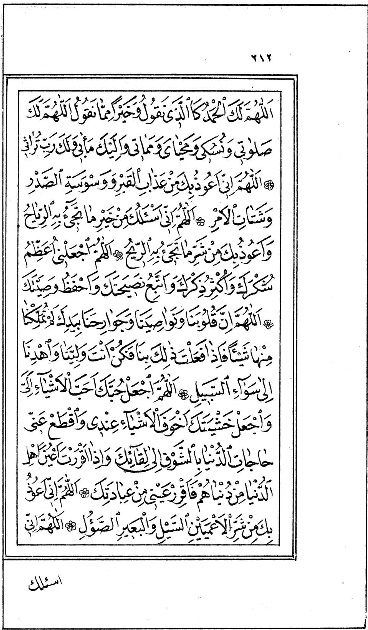 ٢١٢
اَللّٰهُمَّ لَكَ الْحَمْدُ كَالَّذِى نَقُولُ وَخَيْرًا مِمَّا نَقُولُ اَللّٰهُمَّ لَكَ
صَلَوتِى وَنُسُكِى وَمَحْيَاىَ وَمَمَاتِى وَاِلَيْكَ مَاٰبِى وَلَكَ رَبِّ تُرَاثِى
اَللّٰهُمَّ اِنِّى اَعُوذُ بِكَ مِنْ عَذَابِ الْقَبْرِ وَوَسْوَسَةِ الصَّدْرِ
وَشَتَاتِ الْاَمْرِ اَللّٰهُمَّ اِنِّى اَسْئَلُكَ مِنْ خَيْرِ مَا تَجِىءُ بِهِ الرِّيَاحُ
وَاَعُوذُ بِكَ مِنْ شَرِّ مَا تَجِىءُ بِهِ الرِّيحُ اَللّٰهُمَّ اجْعَلْنِى اُعَظِّمُ
شُكْرَكَ وَاُكْثِرُ ذِكْرَكَ وَاَتَّبِعُ نَصِيحَتَكَ وَاَحْفَظُ وَصِيَّتَكَ
اَللّٰهُمَّ اِنَّ قُلُوبَنَا وَنَوَاصِيَنَا وَجَوَارِحَنَا بِيَدِكَ لَمْ تُمَلِّكْنَا
مِنْهَا شَيْئًا فَاِذَا فَعَلْتَ ذٰلِكَ بِنَا فَكُنْ اَنْتَ وَلِيَّنَا وَاهْدِنَا
اِلٰى سَوَاءِ السَّبِيلِ اَللّٰهُمَّ اجْعَلْ حُبَّكَ اَحَبَّ الْاَشْيَاءِ اِلَىَّ
وَاجْعَلْ خَشْيَتَكَ اَخْوَفَ الْاَشْيَاءِ عِنْدِى وَاقْطَعْ عَنِّى
حَاجَاتِ الدُّنْيَا بِالشَّوْقِ اِلٰى لِقَائِكَ وَاِذَا اَقْرَرْتَ اَعْيُنَ اَهْلِ
الدُّنْيَا مِنْ دُنْيَاهُمْ فَاَقْرِرْ عَيْنِى مِنْ عِبَادَتِكَ اَللّٰهُمَّ اِنِّى اَعُوذُ
بِكَ مِنْ شَرِّ الْاَعْمَيَيْنِ السَّيْلِ وَالْبَعِيرِ الصَّؤُلِ اَللّٰهُمَّ اِنِّى
اسئلك